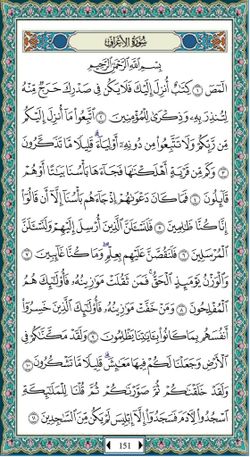 سُورَةُ الأَعْرَافِ
بِسْمِ اللَّهِ الرَّحْمَٰنِ الرَّحِيمِ
الٓمٓصٓ ١ كِتَٰبٌ أُنزِلَ إِلَيْكَ فَلَا يَكُن فِى صَدْرِكَ حَرَجٌ مِّنْهُ
لِتُنذِرَ بِهِۦ وَذِكْرَىٰ لِلْمُؤْمِنِينَ ٢ ٱتَّبِعُوا۟ مَآ أُنزِلَ إِلَيْكُم
مِّن رَّبِّكُمْ وَلَا تَتَّبِعُوا۟ مِن دُونِهِۦٓ أَوْلِيَآءَ ۗ قَلِيلًا مَّا تَذَكَّرُونَ
٣ وَكَم مِّن قَرْيَةٍ أَهْلَكْنَٰهَا فَجَآءَهَا بَأْسُنَا بَيَٰتًا أَوْ هُمْ
قَآئِلُونَ ٤ فَمَا كَانَ دَعْوَىٰهُمْ إِذْ جَآءَهُم بَأْسُنَآ إِلَّآ أَن قَالُوٓا۟
إِنَّا كُنَّا ظَٰلِمِينَ ٥ فَلَنَسْـَٔلَنَّ ٱلَّذِينَ أُرْسِلَ إِلَيْهِمْ وَلَنَسْـَٔلَنَّ
ٱلْمُرْسَلِينَ ٦ فَلَنَقُصَّنَّ عَلَيْهِم بِعِلْمٍ ۖ وَمَا كُنَّا غَآئِبِينَ ٧
وَٱلْوَزْنُ يَوْمَئِذٍ ٱلْحَقُّ ۚ فَمَن ثَقُلَتْ مَوَٰزِينُهُۥ فَأُو۟لَٰٓئِكَ هُمُ
ٱلْمُفْلِحُونَ ٨ وَمَنْ خَفَّتْ مَوَٰزِينُهُۥ فَأُو۟لَٰٓئِكَ ٱلَّذِينَ خَسِرُوٓا۟
أَنفُسَهُم بِمَا كَانُوا۟ بِـَٔايَٰتِنَا يَظْلِمُونَ ٩ وَلَقَدْ مَكَّنَّٰكُمْ فِى
ٱلْأَرْضِ وَجَعَلْنَا لَكُمْ فِيهَا مَعَٰيِشَ ۗ قَلِيلًا مَّا تَشْكُرُونَ ١٠
وَلَقَدْ خَلَقْنَٰكُمْ ثُمَّ صَوَّرْنَٰكُمْ ثُمَّ قُلْنَا لِلْمَلَٰٓئِكَةِ
ٱسْجُدُوا۟ لِءَادَمَ فَسَجَدُوٓا۟ إِلَّآ إِبْلِيسَ لَمْ يَكُن مِّنَ ٱلسَّٰجِدِينَ ١١
151